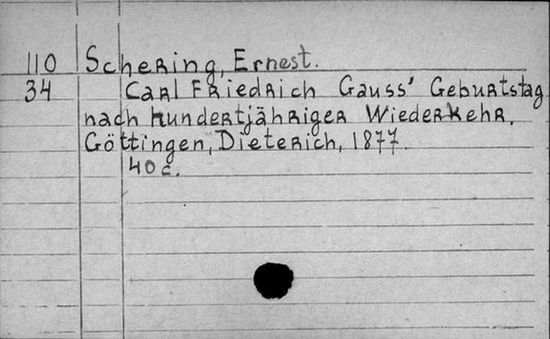 110 Schering, Ernest.
34 Carl Friedrich Gauss' Geburtstag
nach hundertjähriger Wiederkehr.
Göttingen, Dieterich, 1877.
40 c.